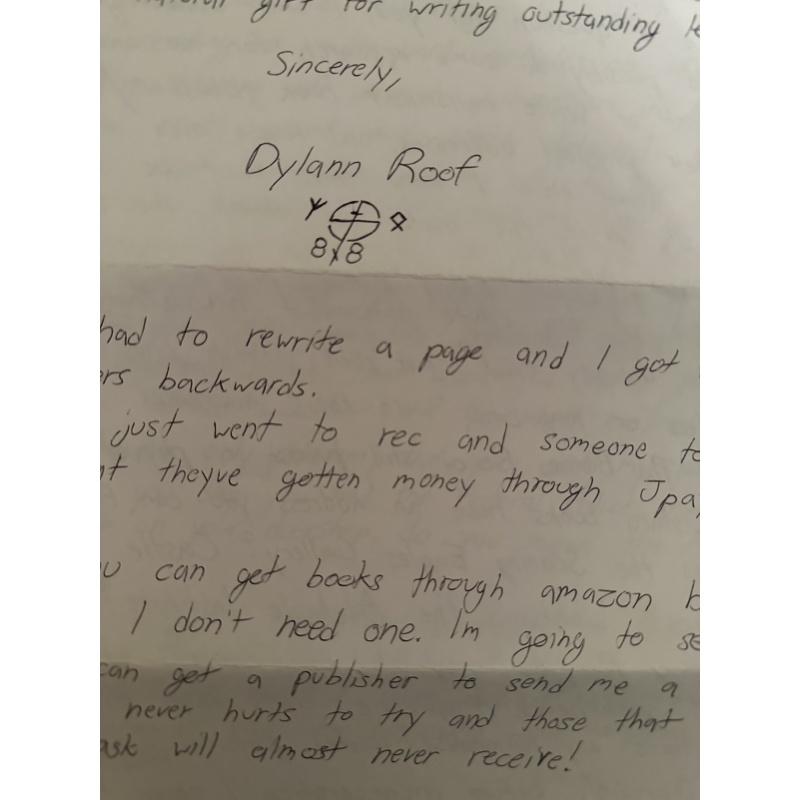 gift for writing outstanding
Sincerely,
Dylann Roof
8 8
had to rewrite a page and I got
backwards.
just went to rec and someone
theyve gotten money through Jpa
can get books through amazon
I don't need one. Im going to
can get a publisher to send me a
never hurts to try and those that
ask will almost never receive!